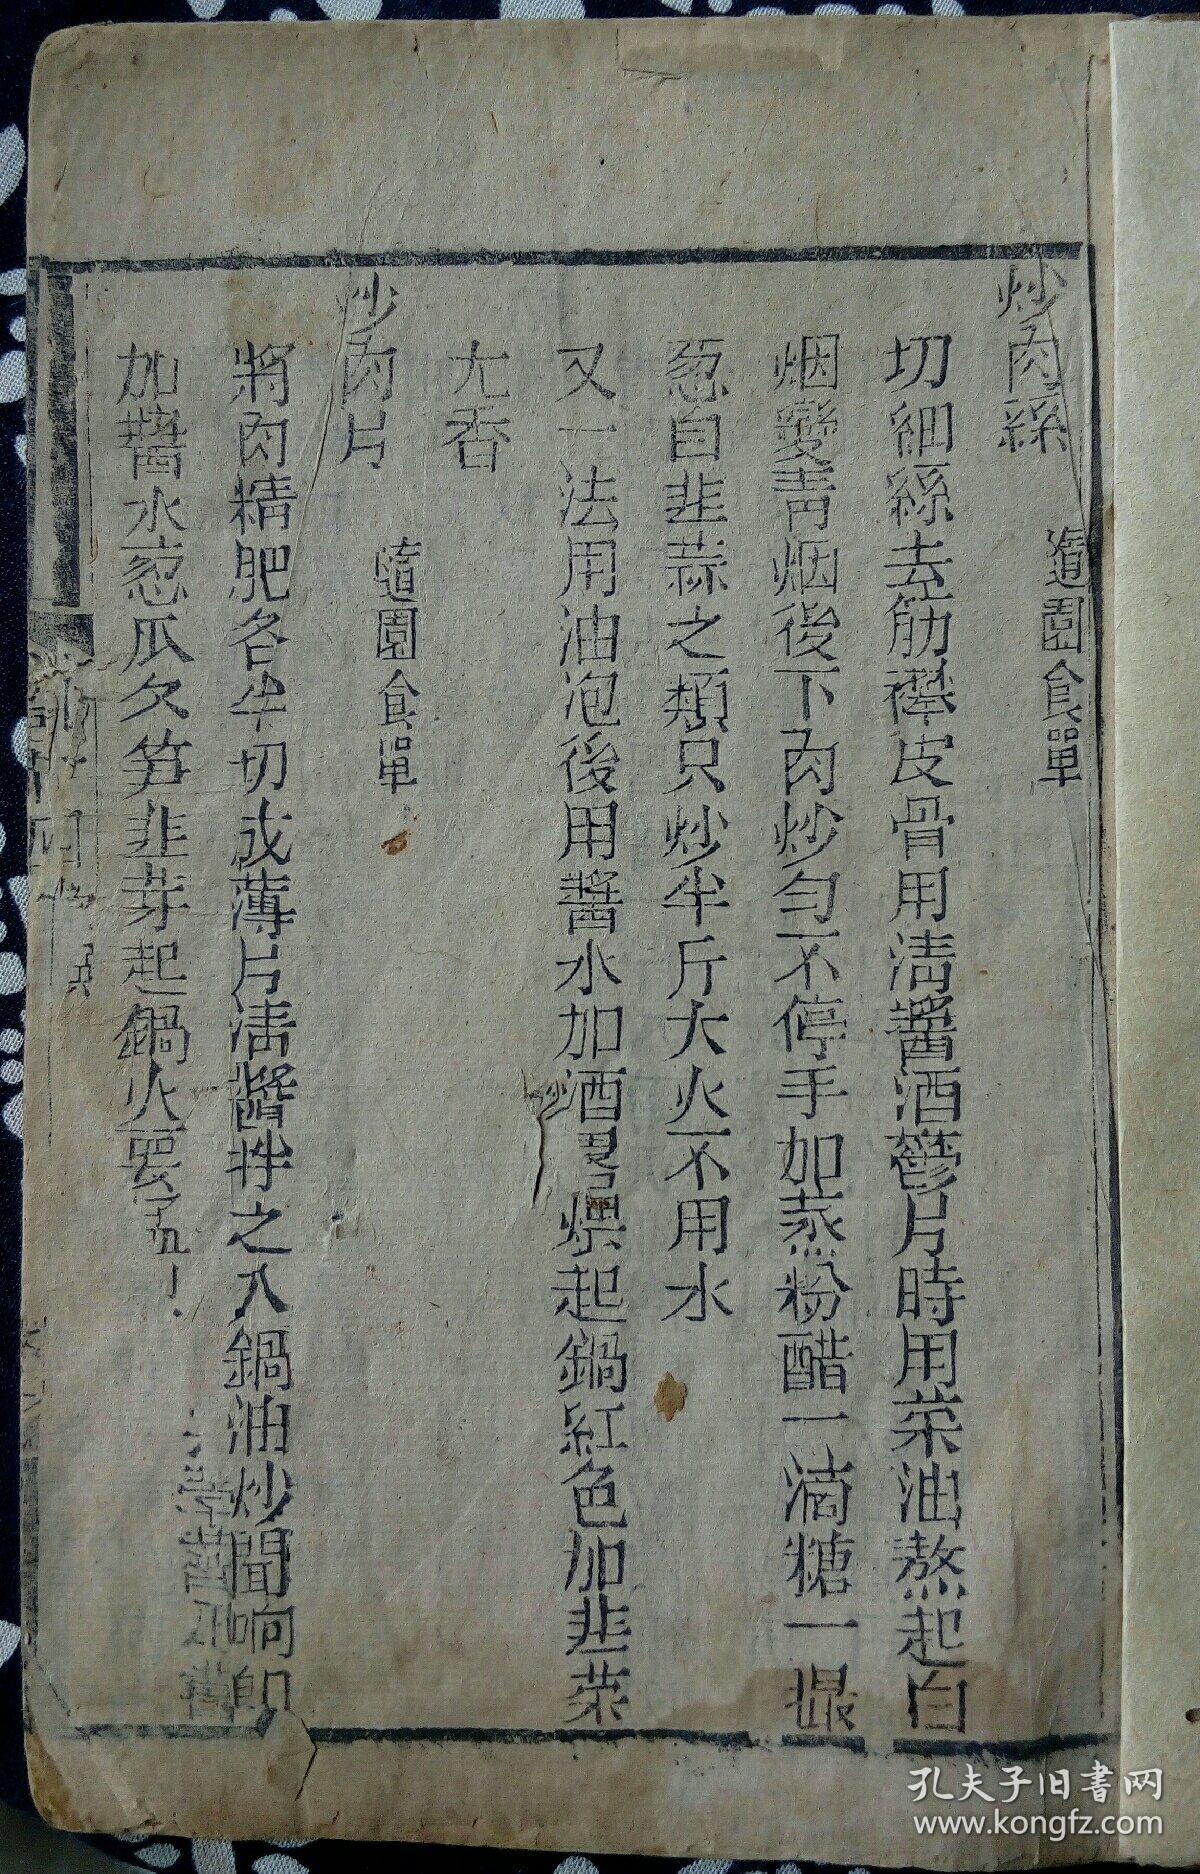 炒肉絲
隨園食單
切細絲去筋襻皮骨用清醬酒鬱片時用菜油熬起白
烟變青烟後下肉炒勻不停手加蒸粉醋一滴糖一撮
葱白韭蒜之類只炒半斤大火不用水
又一法用油泡後用醬水加酒畧煨起鍋紅色加韭菜
尤香
炒肉片
隨園食單
將肉精肥各半切成薄片清醬拌之入鍋油炒聞响即
加醬水葱瓜冬笋韭芽起鍋火要
孔夫子旧书网
www.kongfz.com